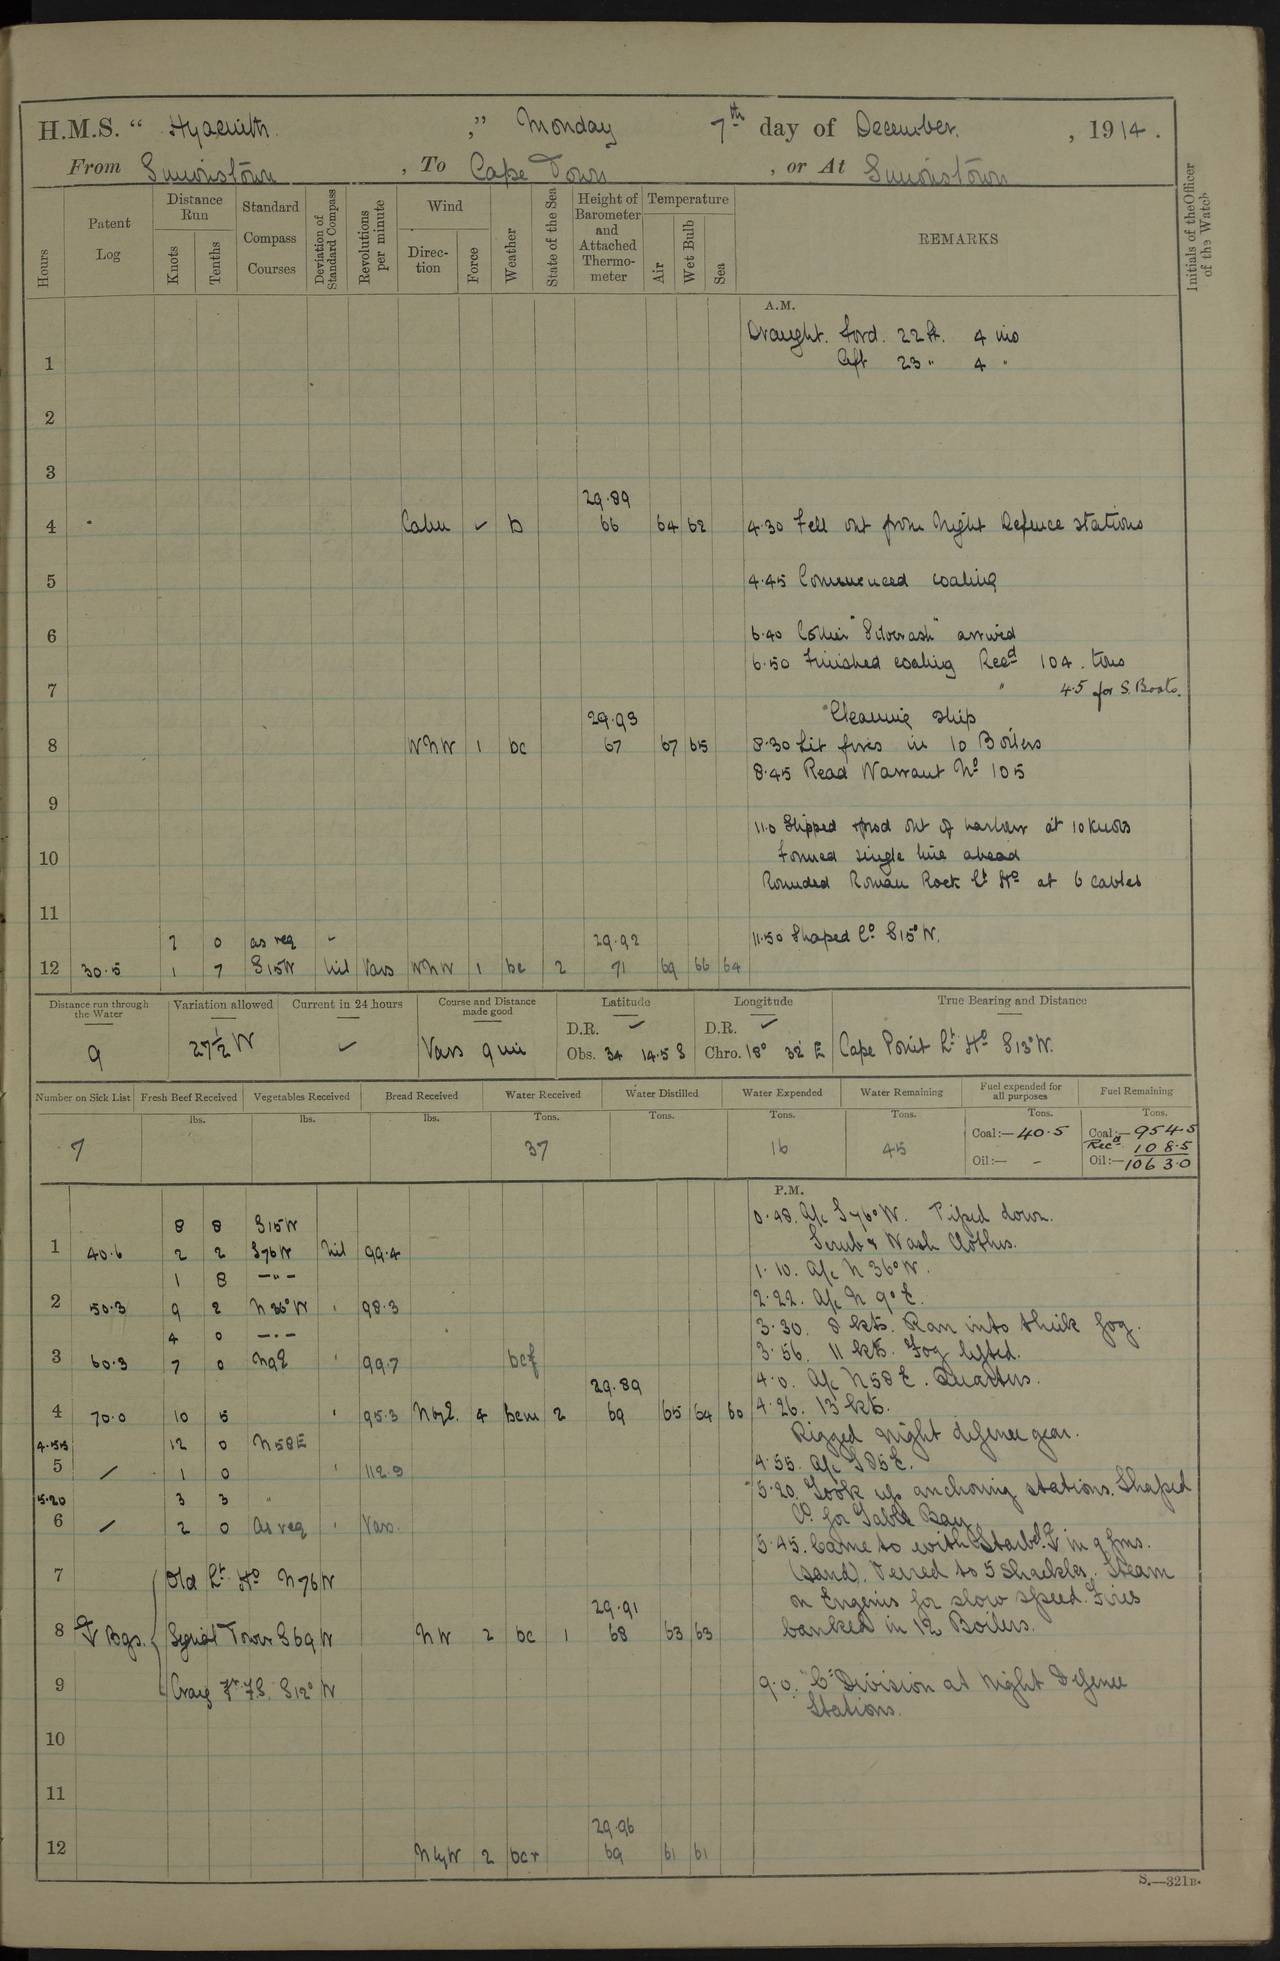 H.M.S. " Hyacinth ," Monday 7th day of December , 1914.
From Simonstown , To Cape Town , or At Simonstown
Hours
Patent Log
Distance Run
Knots
Tenths
Standard Compass Courses
Deviation of Standard Compass
Revolutions per minute
Wind
Direction
Force
Weather
State of the Sea
Height of Barometer and Attached Thermometer
Temperature
Air
Wet Bulb
Sea
REMARKS
Initials of the Officer of the Watch
A.M.
Draught. ford. 22 ft. 4 ins
1 Aft 23 " 4 "
2
3
29.89
4 Calm ✓ b 66 64 62 4.30 Fell out from Night Defence stations
5 4.45 Commenced coaling
6 6.40 Collier "Silverash" arrived
6.50 Finished coaling Recd 104. tons
7 " 4.5 for S. Boats.
29.93 Cleaning ship
8 WNW 1 bc 67 67 65 8.30 Lit fires in 10 Boilers
8.45 Read Warrant No 105
9
11.0 Slipped & prod out of harbour at 10 knots
10 Formed single line ahead
Rounded Roman Rock Lt Ho at 6 cables
11
2 0 as req - 29.92 11.50 Shaped Co S15°W.
12 30.5 1 7 S15W Nil Vars WNW 1 bc 2 71 69 66 64
Distance run through the Water
9
Variation allowed
27½ W
Current in 24 hours
✓
Course and Distance made good
Vars 9 mi
Latitude
D.R. ✓
Obs. 34 14.5 S
Longitude
D.R. ✓
Chro. 18° 32' E
True Bearing and Distance
Cape Point Lt Ho S13°W.
Number on Sick List
7
Fresh Beef Received
lbs.
Vegetables Received
lbs.
Bread Received
lbs.
Water Received
Tons.
37
Water Distilled
Tons.
Water Expended
Tons.
16
Water Remaining
Tons.
45
Fuel expended for all purposes
Tons.
Coal:— 40.5
Oil:— -
Fuel Remaining
Tons.
Coal:— 954.5
Recd 108.5
Oil:— 1063.0
P.M.
8 8 S15W 0.48. A/c S76°W. Piped down.
1 40.6 2 2 S76W Nil 99.4 Scrub & Wash Clothes.
1 8 —"— 1.10. A/c N36°W.
2 50.3 9 2 N36°W ' 98.3 2.22. A/c N9°E.
4 0 —"— 3.30. 8 kts. Ran into thick fog.
3 60.3 7 0 N9E ' 99.7 bcf 3.56. 11 kts. Fog lifted.
29.89 4.0. A/c N58E. Quarters.
4 70.0 10 5 ' 95.3 NbyE. 4 bcm 2 69 65 64 60 4.26. 13 kts.
4.55 12 0 N58E Rigged night defence gear.
5 / 1 0 ' 112.9 4.55. A/c S85E.
5.20 3 3 " 5.20. Took up anchoring stations. Shaped
6 / 2 0 As req ' Vars. Co. for Table Bay.
5.45. Came to with Starbd. in 9 fms.
7 Old Lt Ho N76W (sand). Veered to 5 shackles. Steam
29.91 on Engines for slow speed. Fires
8 Bgs. Signal Tower S69W NW 2 bc 1 68 63 63 banked in 12 Boilers.
9 Craig S12°W 9.0. "C" Division at Night Defence
Stations.
10
11
29.96
12 NbyW 2 bcr 69 61 61
S.—321B.